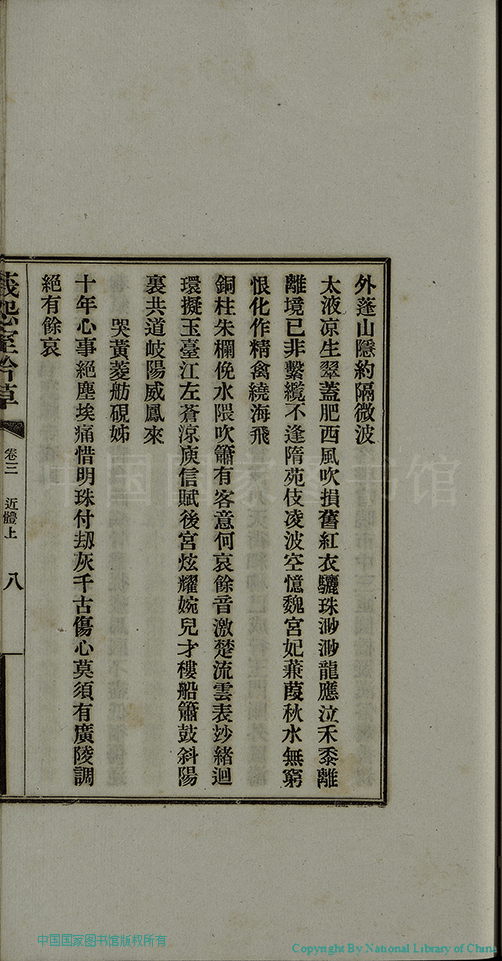 外蓬山隱約隔微波
太液凉生翠蓋肥西風吹損舊紅衣驪珠渺渺龍應泣禾黍離
離境已非繫纜不逢隋苑伎凌波空憶魏宮妃蒹葭秋水無窮
恨化作精禽繞海飛
銅柱朱欄俛水隈吹簫有客意何哀餘音激楚流雲表妙緒迴
環擬玉臺江左蒼涼庾信賦後宮炫耀婉兒才樓船簫鼓斜陽
裏共道岐陽威鳳來
哭黃菱舫硯姊
十年心事絕塵埃痛惜明珠付劫灰千古傷心莫須有廣陵調
絕有餘哀
怨室吟草
卷三 近體上 八
中国国家图书馆
中国国家图书馆版权所有
Copyright By National Library of China